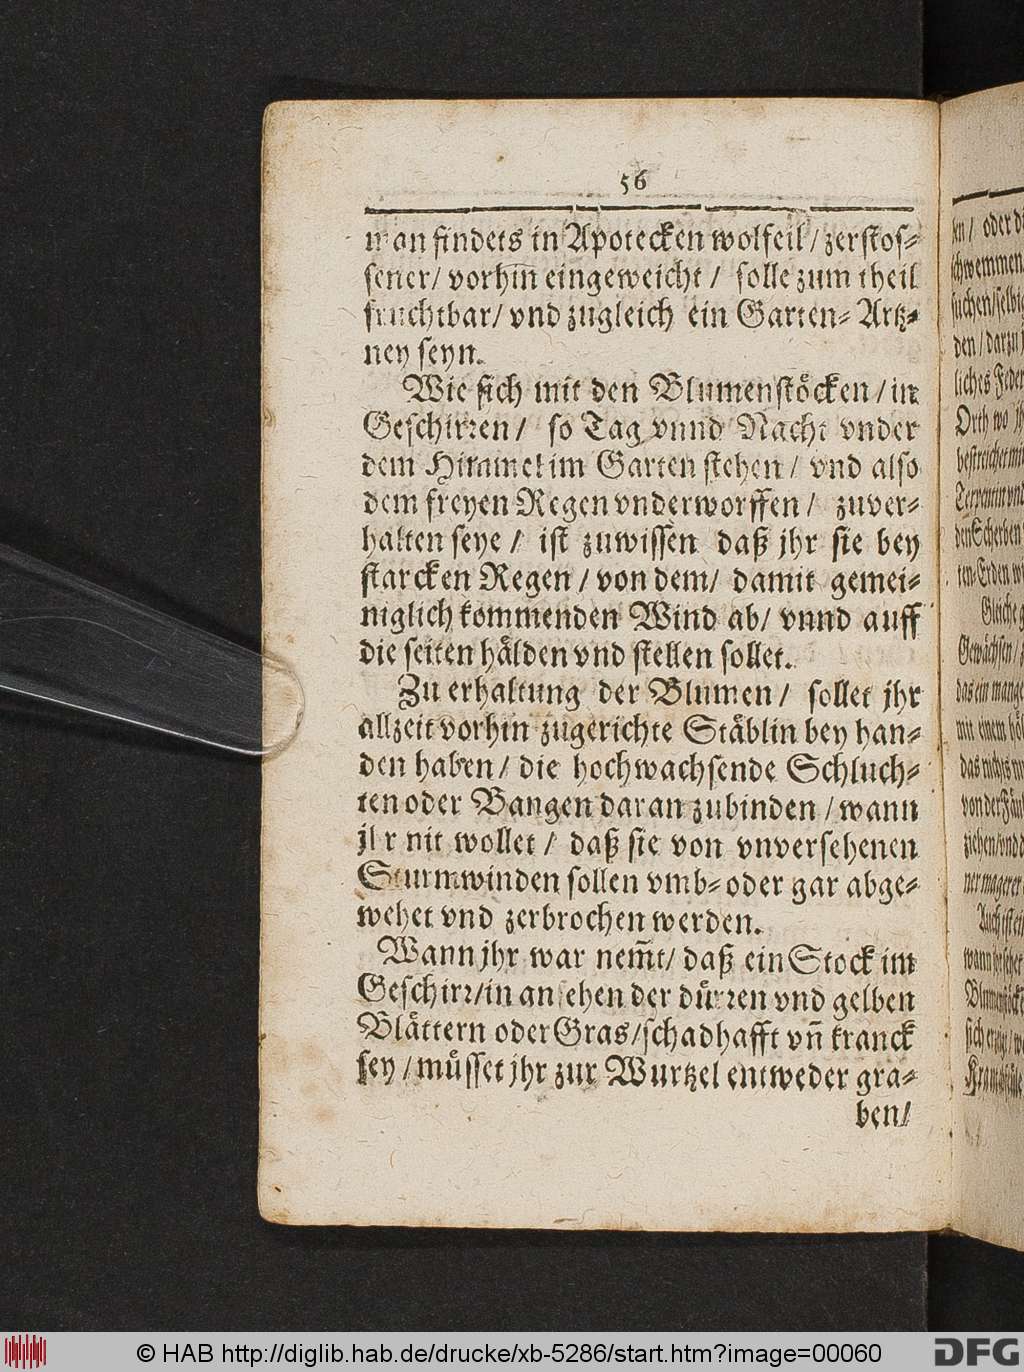 56
man findets in Apotecken wolfeil / zerstos-
sener / vorhin eingeweicht / solle zum theil
fruchtbar / vnd zugleich ein Garten- Artz-
ney seyn.
Wie sich mit den Blumenstöcken / in
Geschirren / so Tag vnnd Nacht vnder
dem Himmel im Garten stehen / vnd also
dem freyen Regen vnderworffen / zuver-
halten seye / ist zuwissen daß jhr sie bey
starcken Regen / von dem / damit gemei-
niglich kommenden Wind ab / vnnd auff
die seiten hälden vnd stellen sollet.
Zu erhaltung der Blumen / sollet jhr
allzeit vorhin zugerichte Stäblin bey han-
den haben / die hochwachsende Schluch-
ten oder Bangen daran zubinden / wann
jhr nit wollet / daß sie von vnversehenen
Sturmwinden sollen vmb- oder gar abge-
wehet vnd zerbrochen werden.
Wann jhr war nem̃t / daß ein Stock im
Geschirr / in ansehen der dürren vnd gelben
Blättern oder Gras / schadhafft vñ kranck
sey / müsset jhr zur Wurtzel entweder gra-
ben /
© HAB http://diglib.hab.de/drucke/xb-5286/start.htm?image=00060
DFG